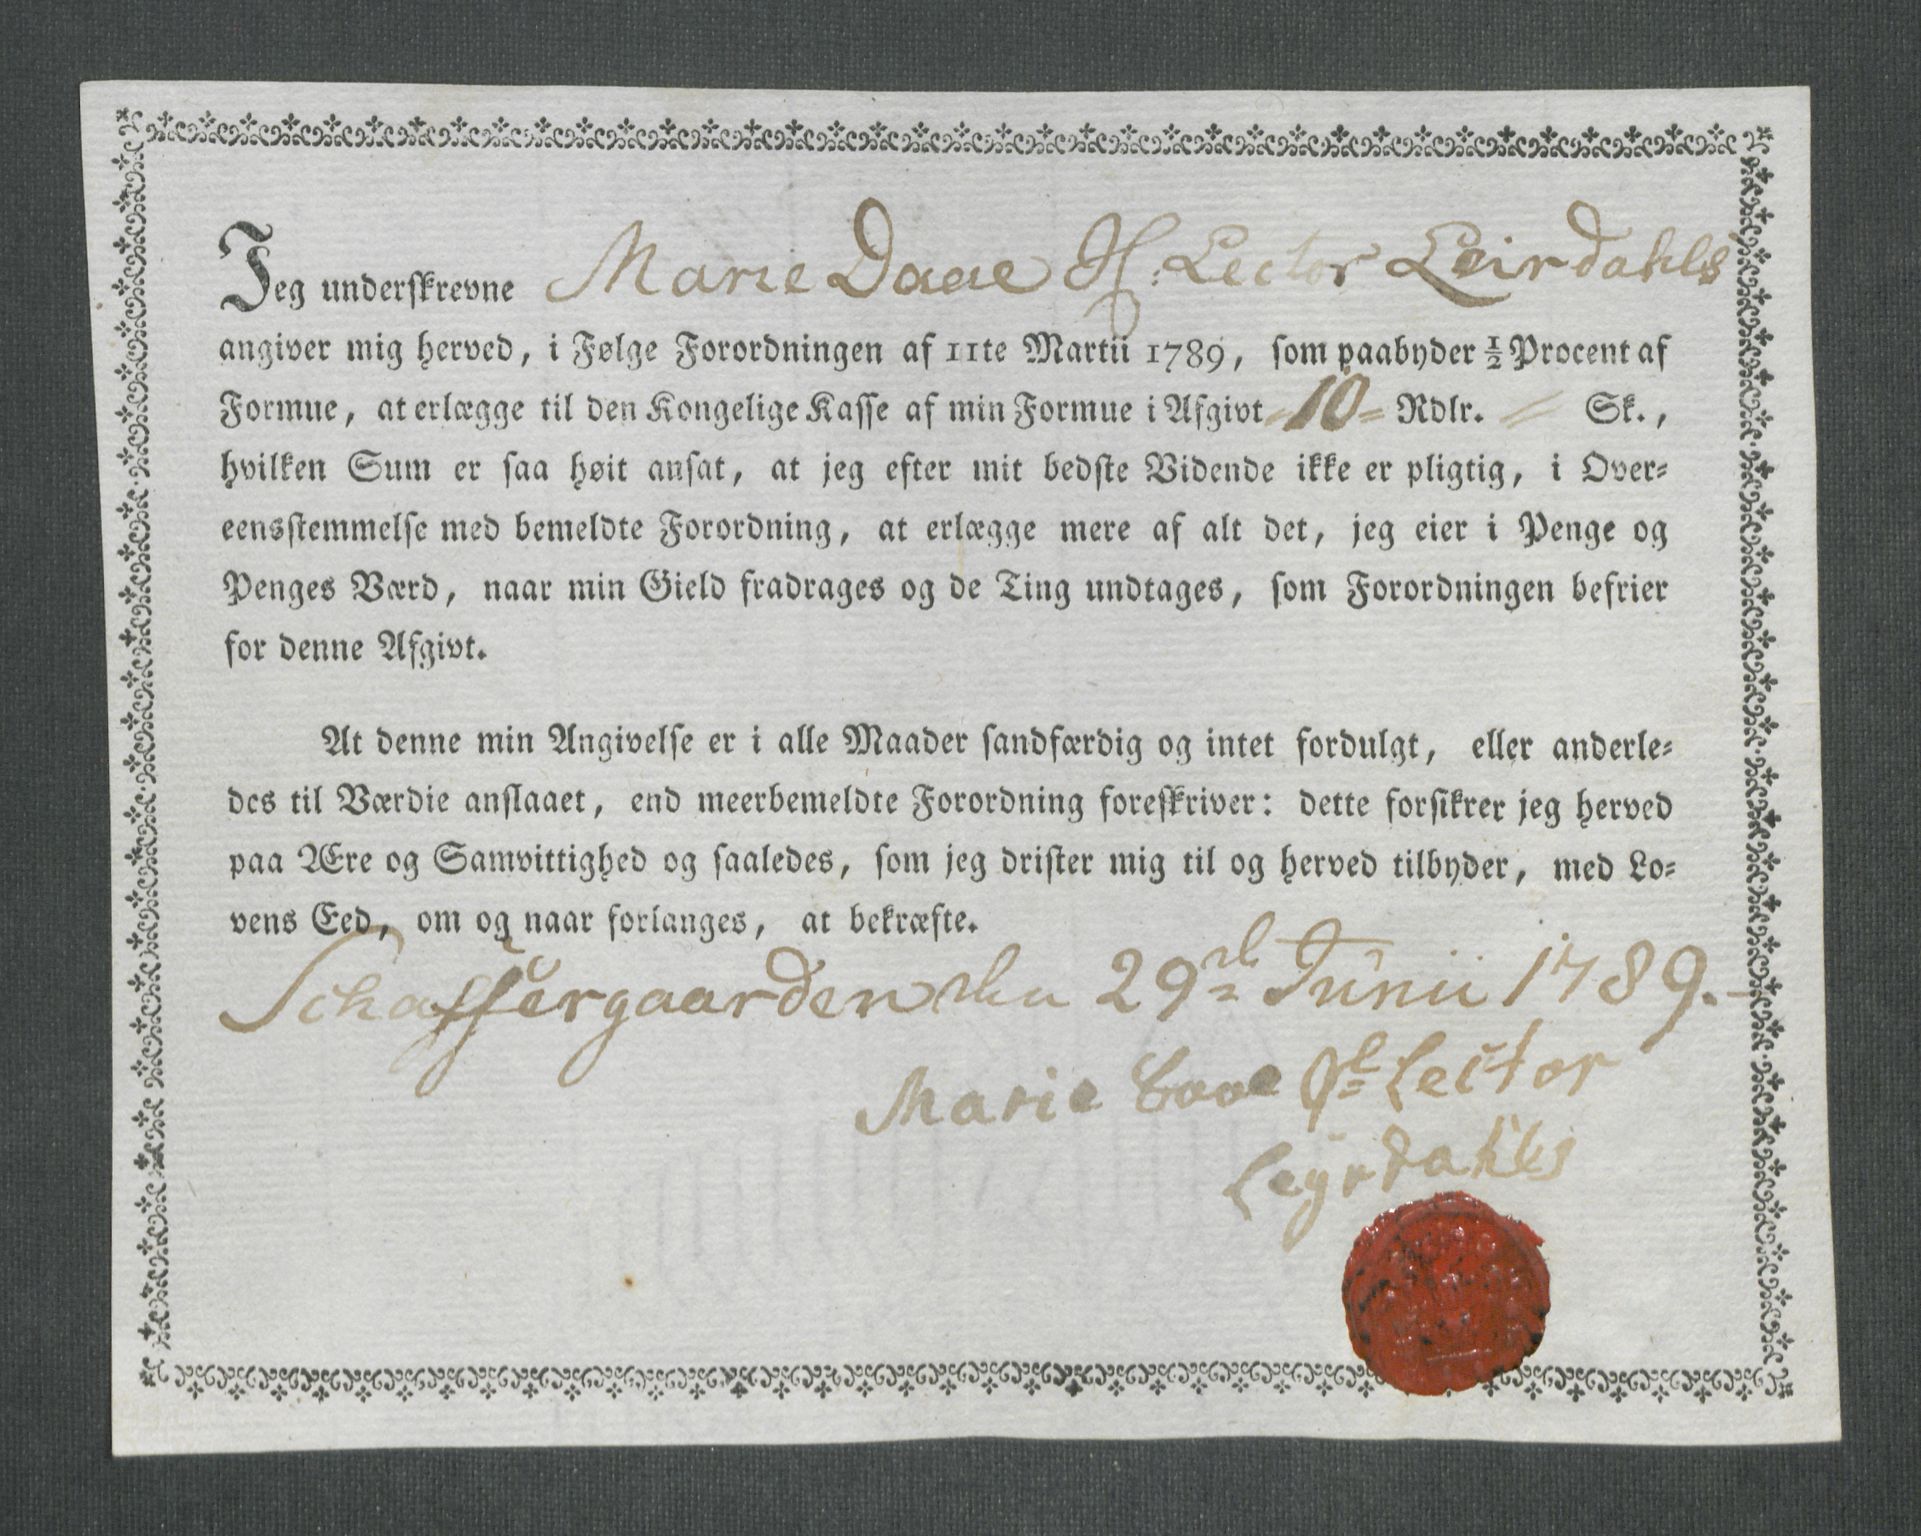 Jeg underskrevne Marie Daae Sl: Lector Leirdahls
angiver mig herved, i Følge Forordningen af 11te Martii 1789, som paabyder ½ Procent af
Formue, at erlægge til den Kongelige Kasse af min Formue i Afgivt = 10 = Rdlr. = Sk.,
hvilken Sum er saa høit ansat, at jeg efter mit bedste Vidende ikke er pligtig, i Over-
eensstemmelse med bemeldte Forordning, at erlægge mere af alt det, jeg eier i Penge og
Penges Værd, naar min Gield fradrages og de Ting undtages, som Forordningen befrier
for denne Afgivt.
At denne min Angivelse er i alle Maader sandfærdig og intet fordulgt, eller anderle-
des til Værdie anslaaet, end meerbemeldte Forordning foreskriver: dette forsikrer jeg herved
paa Ære og Samvittighed og saaledes, som jeg drister mig til og herved tilbyder, med Lo-
vens Eed, om og naar forlanges, at bekræfte.
Schaffergaarden den 29de Junii 1789.
Marie Daae Sl Lector
Leyrdahls